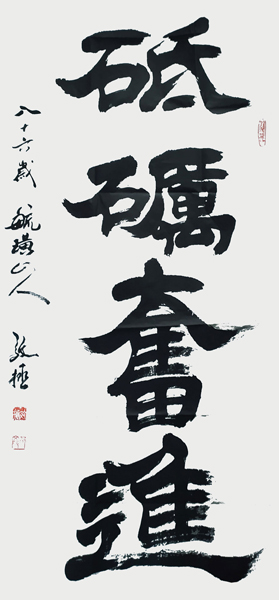 砥礪奮進
八十六歲 毓璜山人